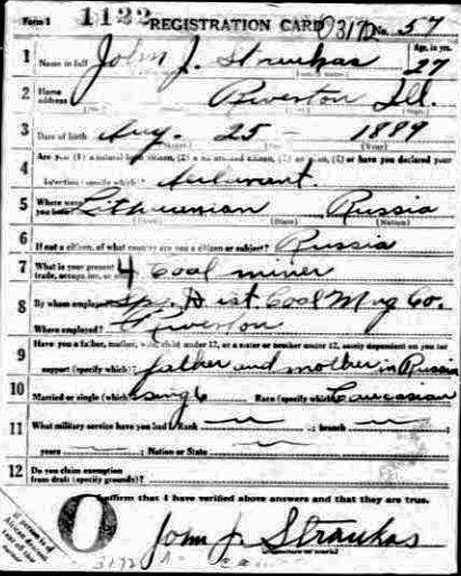 Form 1 1122 REGISTRATION CARD 3172 No. 57
1 Name in full John J. Straukas Age, in yrs. 27
2 Home address Riverton Ill.
3 Date of birth Aug. 25 - 1889
(Year)
4 Are you (1) a natural-born citizen, (2) a naturalized citizen, (3) an alien, (4) or have you declared your
intention (specify which)?
5 Where were you born? Lithuanian Russia
(State) (Nation)
6 If not a citizen, of what country are you a citizen or subject? Russia
7 What is your present trade, occupation, or office? 4 Coal miner
8 By whom employed? Sp. Dist. Coal Mng Co.
Where employed? Riverton
9 Have you a father, mother, wife, child under 12, or a sister or brother under 12, solely dependent on you for
support (specify which)? father and mother in Russia
10 Married or single (which)? single Race (specify which)? Caucasian
11 What military service have you had? Rank ; branch ;
years ; Nation or State
12 Do you claim exemption
from draft (specify grounds)?
I affirm that I have verified above answers and that they are true.
If person is of African descent, tear off this corner
John J. Straukas
3172